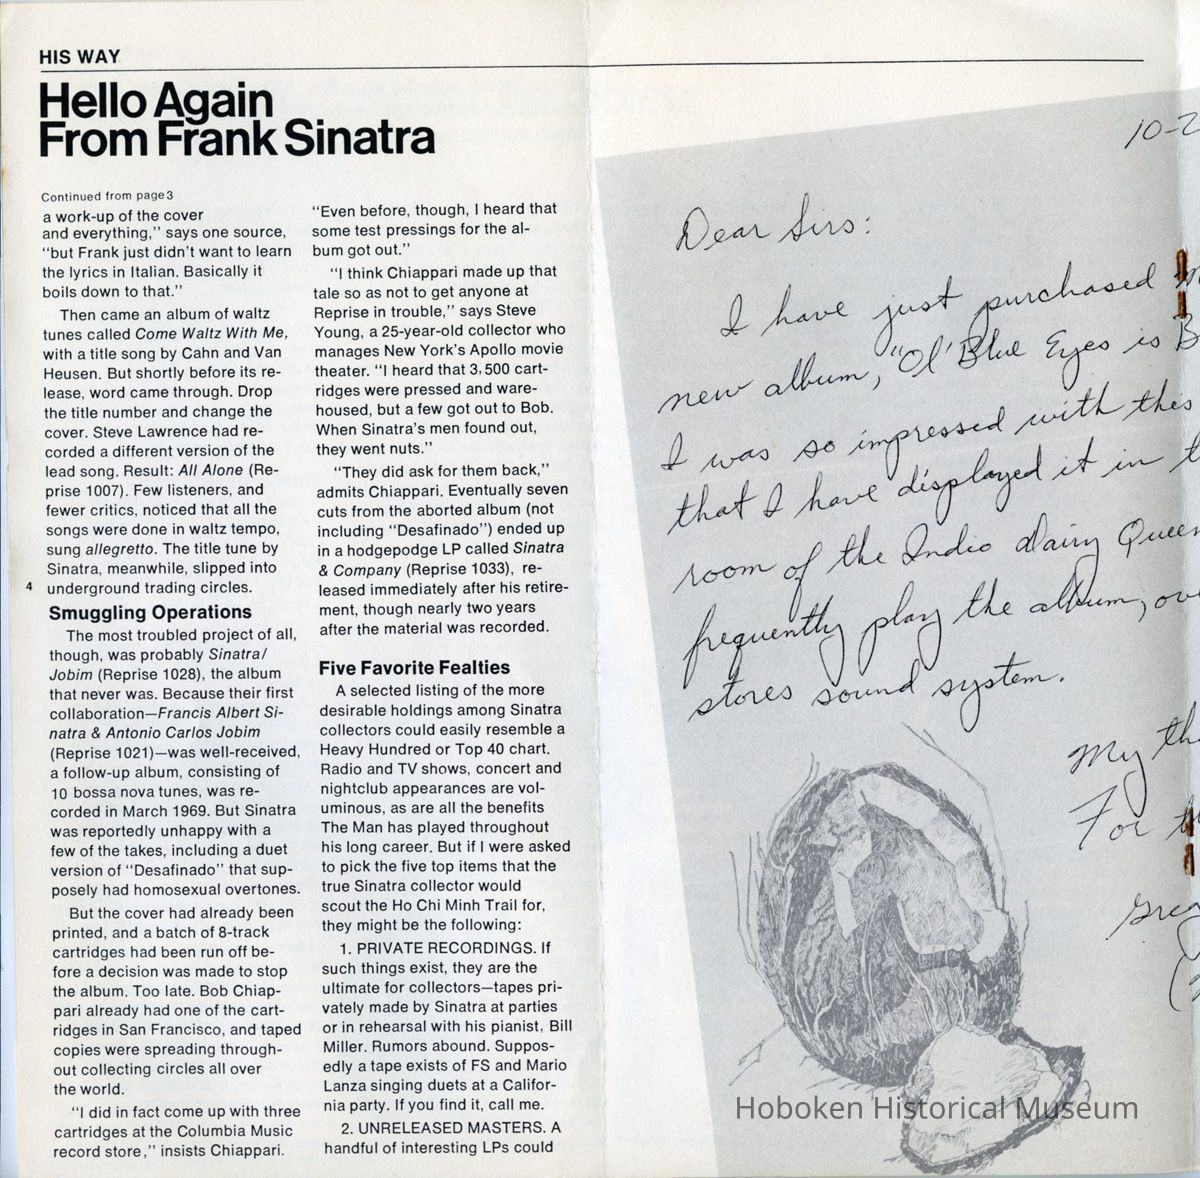 HIS WAY
Hello Again
From Frank Sinatra
Continued from page3
a work-up of the cover
and everything," says one source,
"but Frank just didn't want to learn
the lyrics in Italian. Basically it
boils down to that."
Then came an album of waltz
tunes called Come Waltz With Me,
with a title song by Cahn and Van
Heusen. But shortly before its re-
lease, word came through. Drop
the title number and change the
cover. Steve Lawrence had re-
corded a different version of the
lead song. Result: All Alone (Re-
prise 1007). Few listeners, and
fewer critics, noticed that all the
songs were done in waltz tempo,
sung allegretto. The title tune by
Sinatra, meanwhile, slipped into
underground trading circles.
4
Smuggling Operations
The most troubled project of all,
though, was probably Sinatra/
Jobim (Reprise 1028), the album
that never was. Because their first
collaboration—Francis Albert Si-
natra & Antonio Carlos Jobim
(Reprise 1021)—was well-received,
a follow-up album, consisting of
10 bossa nova tunes, was re-
corded in March 1969. But Sinatra
was reportedly unhappy with a
few of the takes, including a duet
version of "Desafinado" that sup-
posely had homosexual overtones.
But the cover had already been
printed, and a batch of 8-track
cartridges had been run off be-
fore a decision was made to stop
the album. Too late. Bob Chiap-
pari already had one of the cart-
ridges in San Francisco, and taped
copies were spreading through-
out collecting circles all over
the world.
"I did in fact come up with three
cartridges at the Columbia Music
record store," insists Chiappari.
"Even before, though, I heard that
some test pressings for the al-
bum got out."
"I think Chiappari made up that
tale so as not to get anyone at
Reprise in trouble," says Steve
Young, a 25-year-old collector who
manages New York's Apollo movie
theater. "I heard that 3,500 cart-
ridges were pressed and ware-
housed, but a few got out to Bob.
When Sinatra's men found out,
they went nuts."
"They did ask for them back,"
admits Chiappari. Eventually seven
cuts from the aborted album (not
including "Desafinado") ended up
in a hodgepodge LP called Sinatra
& Company (Reprise 1033), re-
leased immediately after his retire-
ment, though nearly two years
after the material was recorded.
Five Favorite Fealties
A selected listing of the more
desirable holdings among Sinatra
collectors could easily resemble a
Heavy Hundred or Top 40 chart.
Radio and TV shows, concert and
nightclub appearances are vol-
uminous, as are all the benefits
The Man has played throughout
his long career. But if I were asked
to pick the five top items that the
true Sinatra collector would
scout the Ho Chi Minh Trail for,
they might be the following:
1. PRIVATE RECORDINGS. If
such things exist, they are the
ultimate for collectors—tapes pri-
vately made by Sinatra at parties
or in rehearsal with his pianist, Bill
Miller. Rumors abound. Suppos-
edly a tape exists of FS and Mario
Lanza singing duets at a Califor-
nia party. If you find it, call me.
2. UNRELEASED MASTERS. A
handful of interesting LPs could
10-2
Dear Sirs:
I have just purchased
new album, "Ol' Blue Eyes is B
I was so impressed with this
that I have displayed it in t
room of the Indio Dairy Queen
frequently play the album, ov
stores sound system.
My th
For
Hoboken Historical Museum